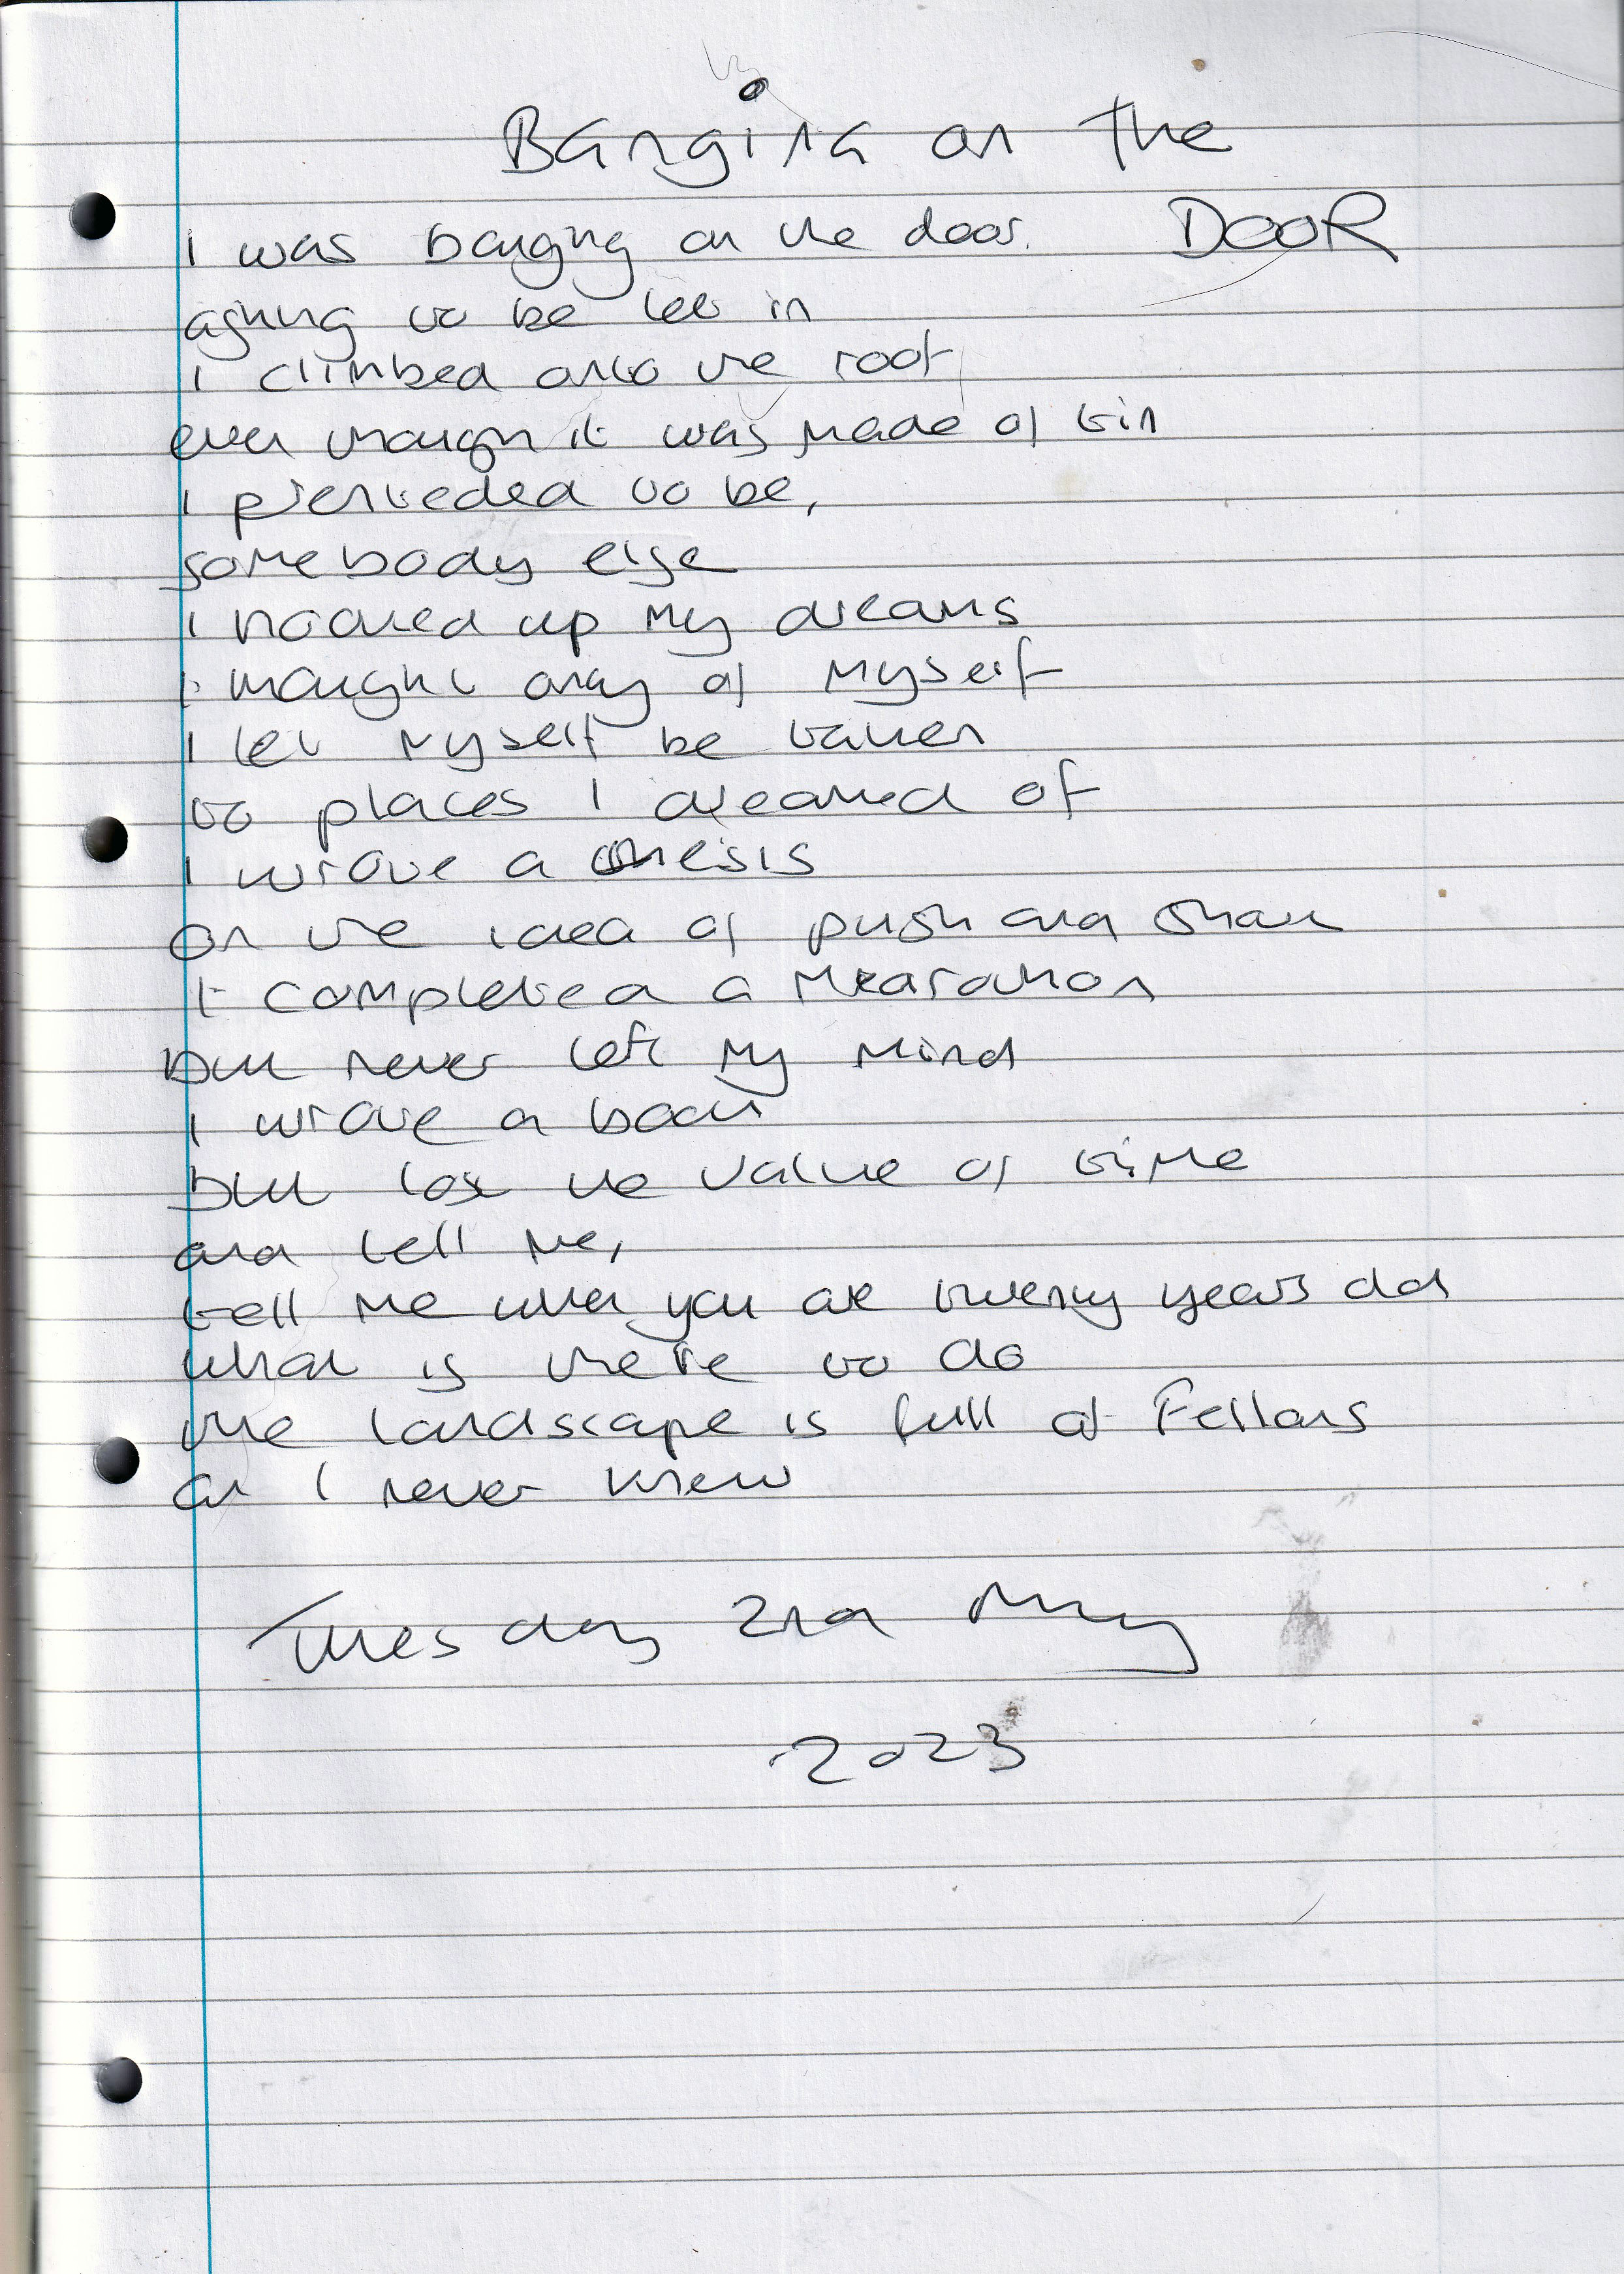 Banging on the
DOOR
I was banging on the door.
asking to be let in
I climbed onto the roof
even though it was made of tin
I pretended to be,
somebody else
I hooked up my dreams
I thought only of myself
I let myself be taken
to places I dreamed of
I wrote a thesis
on the idea of push and shove
I completed a marathon
but never left my mind
I wrote a book
but lost the value of time
and tell me,
tell me when you are twenty years old
what is there to do
the landscape is full of Fellows
I never knew
Tuesday 2nd May
2023